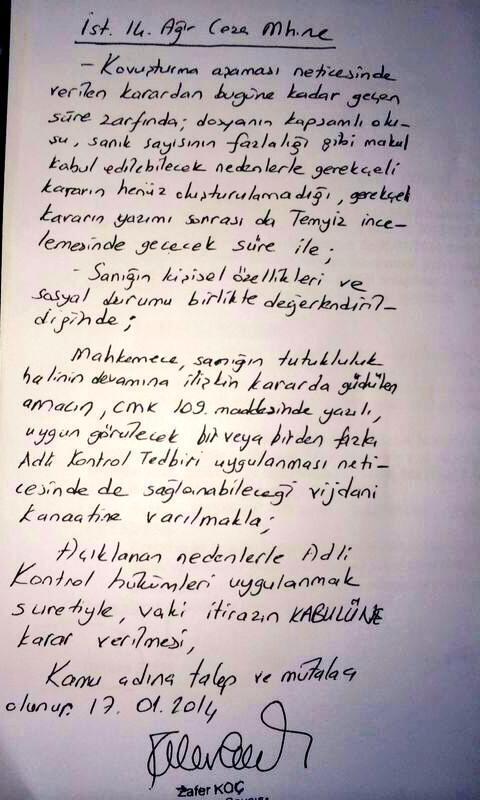 İst. 14. Ağır Ceza Mhine
- Kovuşturma aşaması neticesinde
verilen karardan bugüne kadar geçen
süre zarfında; dosyanın kapsamlı olu-
su, sanık sayısının fazlalığı gibi makul
kabul edilebilecek nedenlerle gerekçeli
kararın henüz oluşturulamadığı, gerekçeli
kararın yazımı sonrası da Temyiz ince-
lemesinde geçecek süre ile;
- Sanığın kişisel özellikleri ve
sosyal durumu birlikte değerlendiril-
diğinde;
Mahkemece, sanığın tutukluluk
halinin devamına ilişkin kararda güdülen
amacın, CMK 109. maddesinde yazılı,
uygun görülecek bir veya birden fazla
Adli Kontrol Tedbiri uygulanması neti-
cesinde de sağlanabileceği vijdani
kanaatine varılmakla;
Açıklanan nedenlerle Adli
Kontrol hükümleri uygulanmak
suretiyle, vaki itirazın KABULÜNE
karar verilmesi,
Kamu adına talep ve mütalaa
olunur. 17.01.2014
Zafer KOÇ